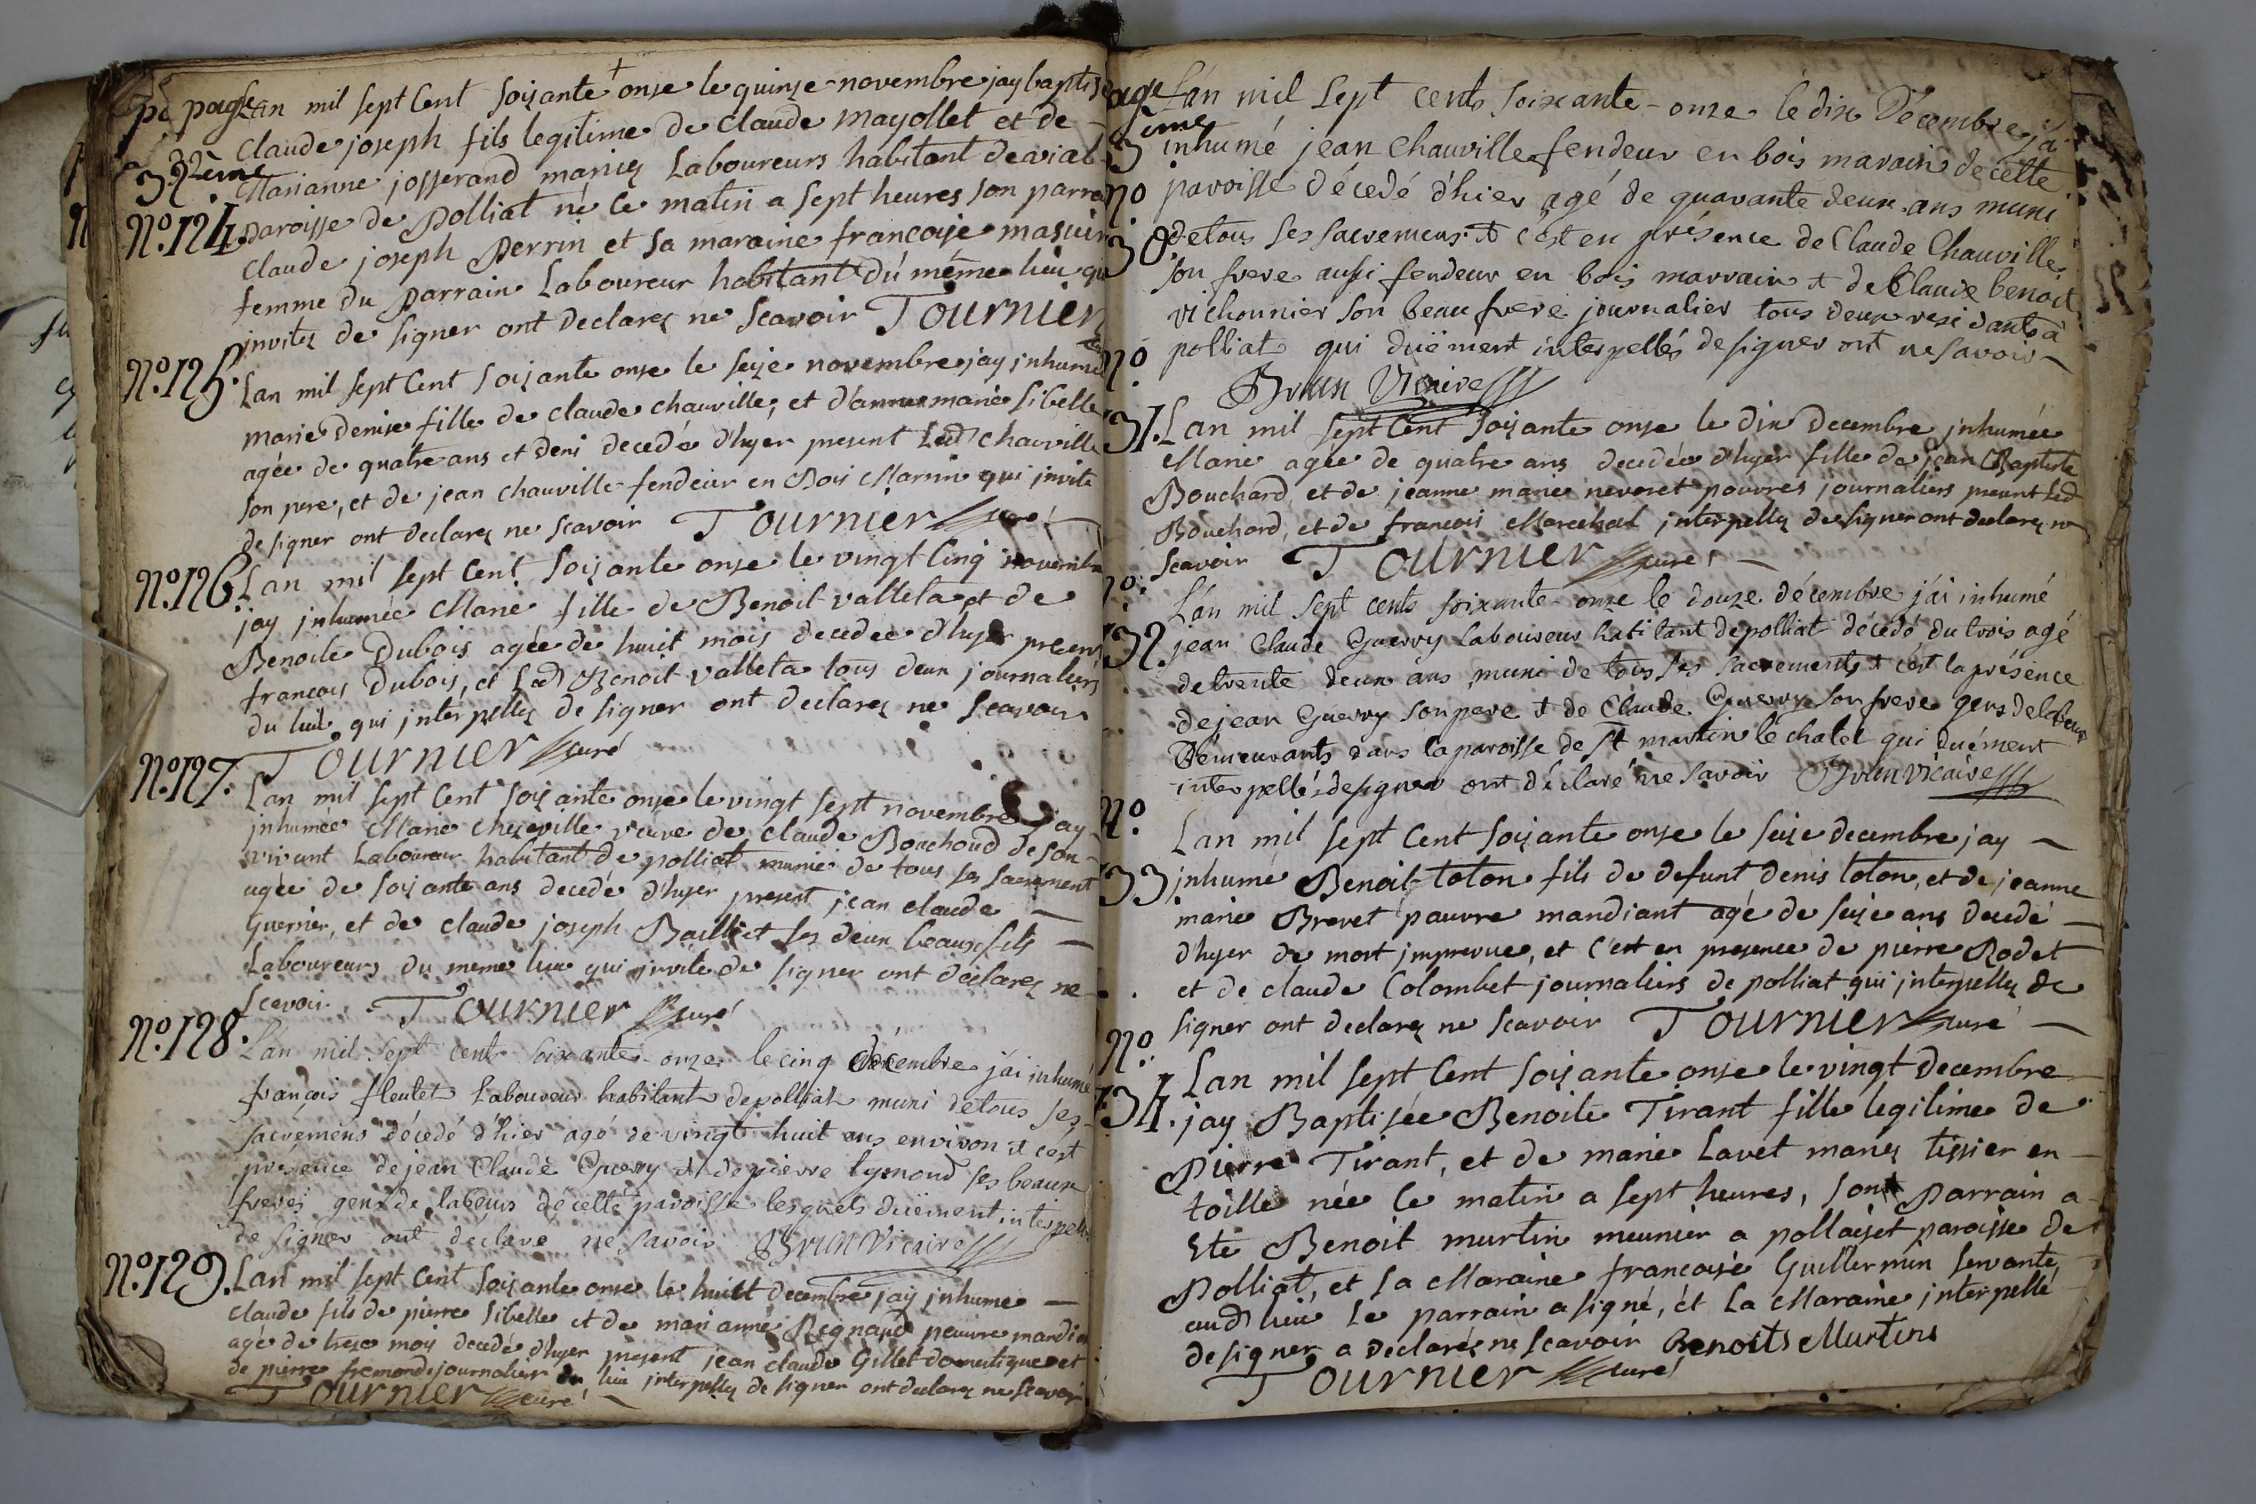 pe page Lan mil sept Cent soixante onse le quinze novembre jay baptisé
Claude joseph fils legitime de claude mayollet et de
32eme Marianne josserand mariez Laboureurs habitant de
No.124. paroisse de Polliat né Ce matin a sept heures son parra
Claude joseph Perrin et sa maraine francoise
femme du parrain Laboureur habitant dú même lieu qui
invitez de signer ont declarez ne scavoir Tournier
No.125. Lan mil sept Cent soixante onse le seize novembre jay inhumé
marie denise fille de claude chauville, et d'anne marie sibelle
agée de quatre ans et demi decedée d'hyer present Led chauville
son pere, et de jean chauville fendeur en Bois Marrin qui invité
de signer ont declarez ne scavoir Tournier curé
No.126. Lan mil sept Cent soixante onse le vingt Cinq novembre
jay inhumée Marie fille de Benoit valleta et de
Benoite Dubois agée de huit mois decedée d'hyer present
francois Dubois, et Led Benoit valleta tous deux journaliers
du lieu qui interpellez de signer ont declarez ne scavoir
Tournier curé
No.127. Lan mil sept Cent soixante onse le vingt sept novembre jay
inhumée Marie cheseville veuve de claude Bouchoud de son
vivant Laboureur habitant de polliat munie de tous ses sacrement
agée de soixante ans decedé d'hyer present jean claude
Guerrier, et de claude joseph Bailliet ses deux beaux fils
Laboureurs du meme lieu qui invité de signer ont declarez ne
scavoir. Tournier curé
No.128. L'an mil sept cent soixante onze le cinq décembre j'ai inhumé
françois fleutet Laboureur habitant de polliat muni de tous ses
sacremens décédé d'hier agé de vingt huit ans environ et c'est
présence de jean Claude Guerry et de pierre lymond ses beaux
freres gens de labeurs de cette paroisse lesquels dúëment interpellés
de signer ont déclaré ne savoir Brun Vicaire
No.129. Lan mil sept Cent soixante onse le huitt decembre jay inhumé
claude fils de pierre sibelle et de marianne Regnaud pauvre mandia
agé de treze moy decedé d'hyer present jean claude Gillet domestique et
de pierre fremond journalier du lieu interpellez de signer ont declarez ne scavoir
Tournier curé
age L'án mil sept cents soixante-onze le dix Décembre j'ai
3eme inhumé jean Chauville fendeur en bois marain de cette
no paroisse décedé d'hier agé de quarante deux ans muni
30. de tous ses sacremens et c'est en présence de Claude Chauville
son frere aussi fendeur en bois marrain et de Claude benoit
vichonnier son beau frere journalier tous deux residants à
no polliat qui duëment interpellés de signer ont ne savoir
Brun Vicaire
31. Lan mil sept Cent soixante onse le dix decembre inhumée
Marie agée de quatre ans decedée d'hyer fille de jean Baptiste
Bouchard, et de jeanne marie neveret pauvres journaliers present Led
Bouchard, et de francois Marechal interpellez de signer ont declarez ne
scavoir Tournier curé
no. L'án mil sept cents soixante-onze le douze décembre j'ái inhumé
32. jean Claude Guerry Laboureur habitant de polliat décédé du trois agé
de trente deux ans muni de tous ses sacrements et c'est la présence
de jean Guerry son pere et de Claude Guerry son frere gens de labeur
Démeurants dans la paroisse de St martin le chatel qui duément
interpellés de signer ont déclaré ne savoir Brun vicaire
no Lan mil sept Cent soixante onse le seize decembre jay
33 inhumé Benoit toton fils de defunt denis toton, et de jeanne
marie Brevet pauvre mandiant agé de seize ans decedé
d'hyer de mort imprevue, et C'est en presence de pierre Rodet
et de claude Colombet journaliers de polliat qui interpellez de
signer ont declarez ne scavoir Tournier curé
no. Lan mil sept Cent soixante onse le vingt decembre
34. jay Baptisée Benoite Tirant fille legitime de
Pierre Tirant, et de marie Lavet mariez tissier en
toille née Ce matin a sept heures, son Parrain a
Eté Benoit murtin meunier a pollaiset paroisse de
Polliat, et sa Maraine francoise Guillermin servante
aud lieu Le parrain a signé, et La Maraine interpellé
de signer a declarez ne scavoir Benoits Murtins
Tournier curé